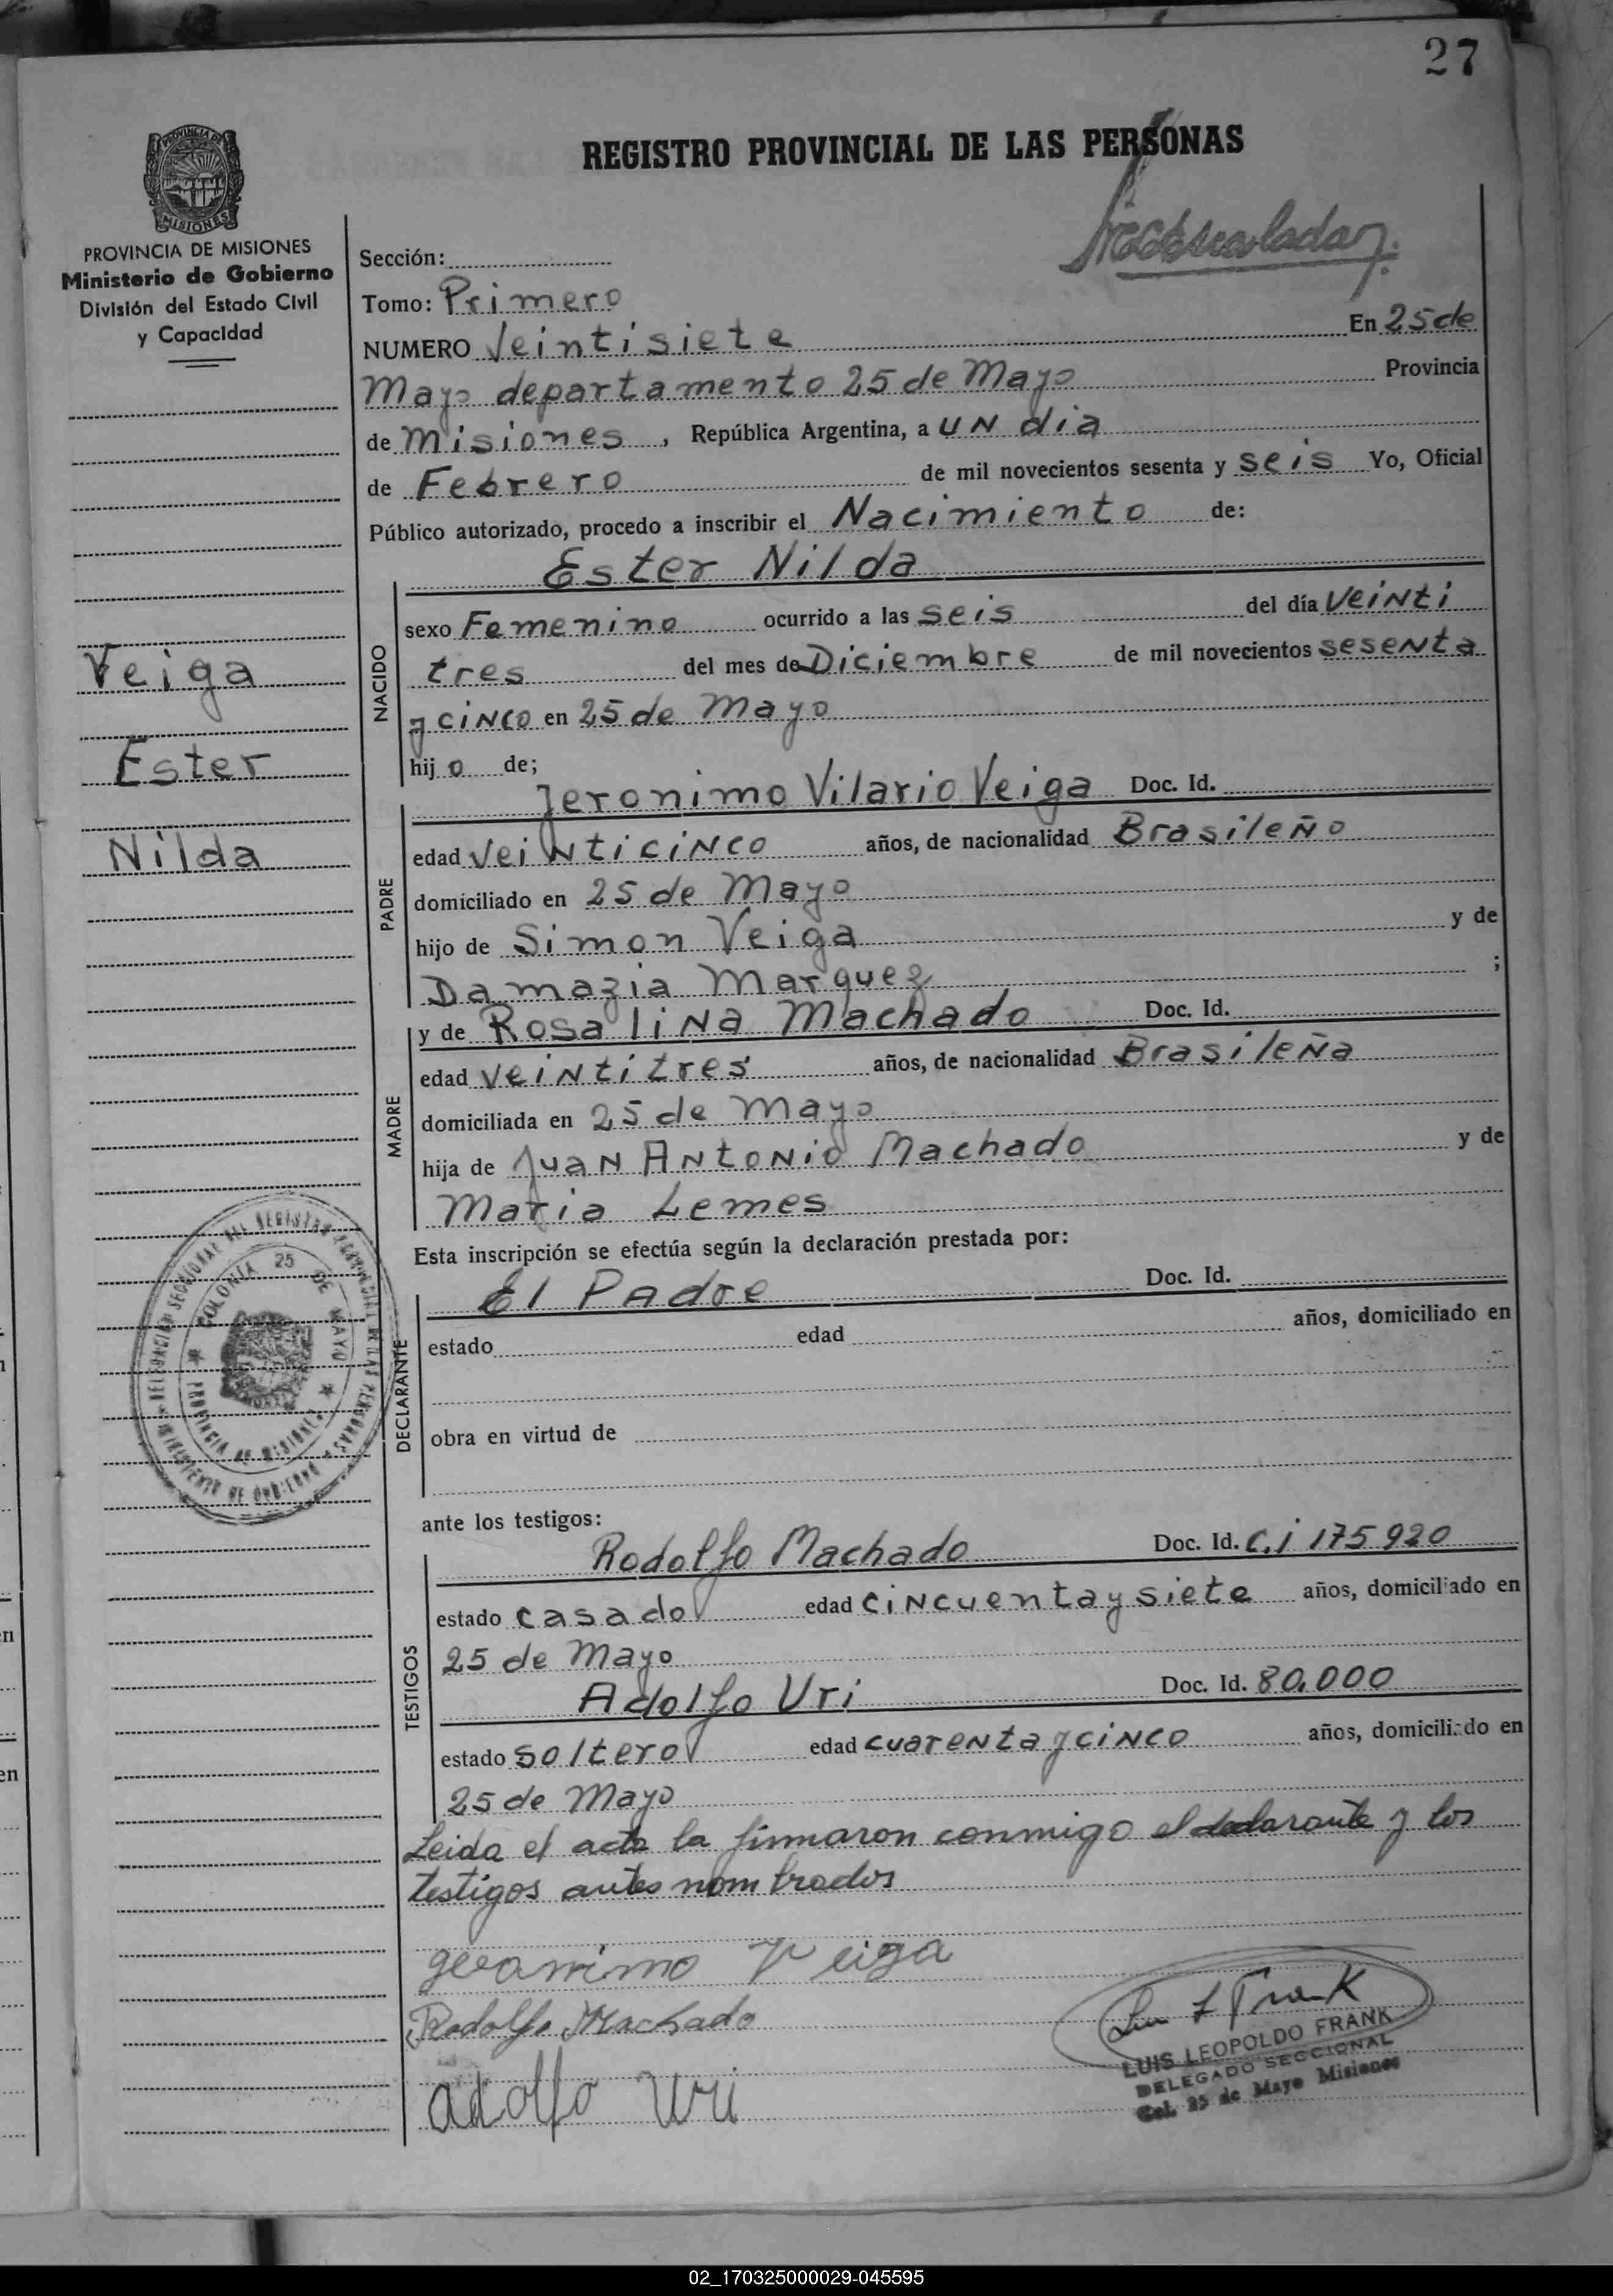 27
REGISTRO PROVINCIAL DE LAS PERSONAS
PROVINCIA DE
MISIONES
PROVINCIA DE MISIONES
Ministerio de Gobierno
División del Estado Civil
y Capacidad
Veiga
Ester
Nilda
Sección:
Tomo: Primero
NUMERO Veintisiete En 25 de
Mayo departamento 25 de Mayo Provincia
de Misiones, República Argentina, a UN dia
de Febrero de mil novecientos sesenta y seis Yo, Oficial
Público autorizado, procedo a inscribir el Nacimiento de:
NACIDO
Ester Nilda
sexo Femenino ocurrido a las seis del día veinti
tres del mes de Diciembre de mil novecientos sesenta
y cinco en 25 de Mayo
hijo de;
PADRE
Jeronimo Vilario Veiga Doc. Id.
edad veinticinco años, de nacionalidad Brasileño
domiciliado en 25 de Mayo
hijo de Simon Veiga y de
Damazia Marquez ;
MADRE
y de Rosalina Machado Doc. Id.
edad veintitres años, de nacionalidad Brasileña
domiciliada en 25 de Mayo
hija de Juan Antonio Machado y de
Maria Lemes
Esta inscripción se efectúa según la declaración prestada por:
DECLARANTE
El Padre Doc. Id.
estado edad años, domiciliado en
obra en virtud de
ante los testigos:
TESTIGOS
Rodolfo Machado Doc. Id. C.i 175920
estado casado edad cincuenta y siete años, domiciliado en
25 de Mayo
Adolfo Uri Doc. Id. 80.000
estado soltero edad cuarenta y cinco años, domiciliado en
25 de Mayo
Leida el acta la firmaron conmigo el declarante y los
testigos antes nombrados
geronimo Veiga
Rodolfo Machado
adolfo Uri
Luis L Frank
LUIS LEOPOLDO FRANK
DELEGADO SECCIONAL
Col. 25 de Mayo Misiones
DELEGACION SECCIONAL DEL REGISTRO PROVINCIAL DE LAS PERSONAS
MINISTERIO DE GOBIERNO
COLONIA 25 DE MAYO
PROVINCIA DE MISIONES
02_170325000029-045595